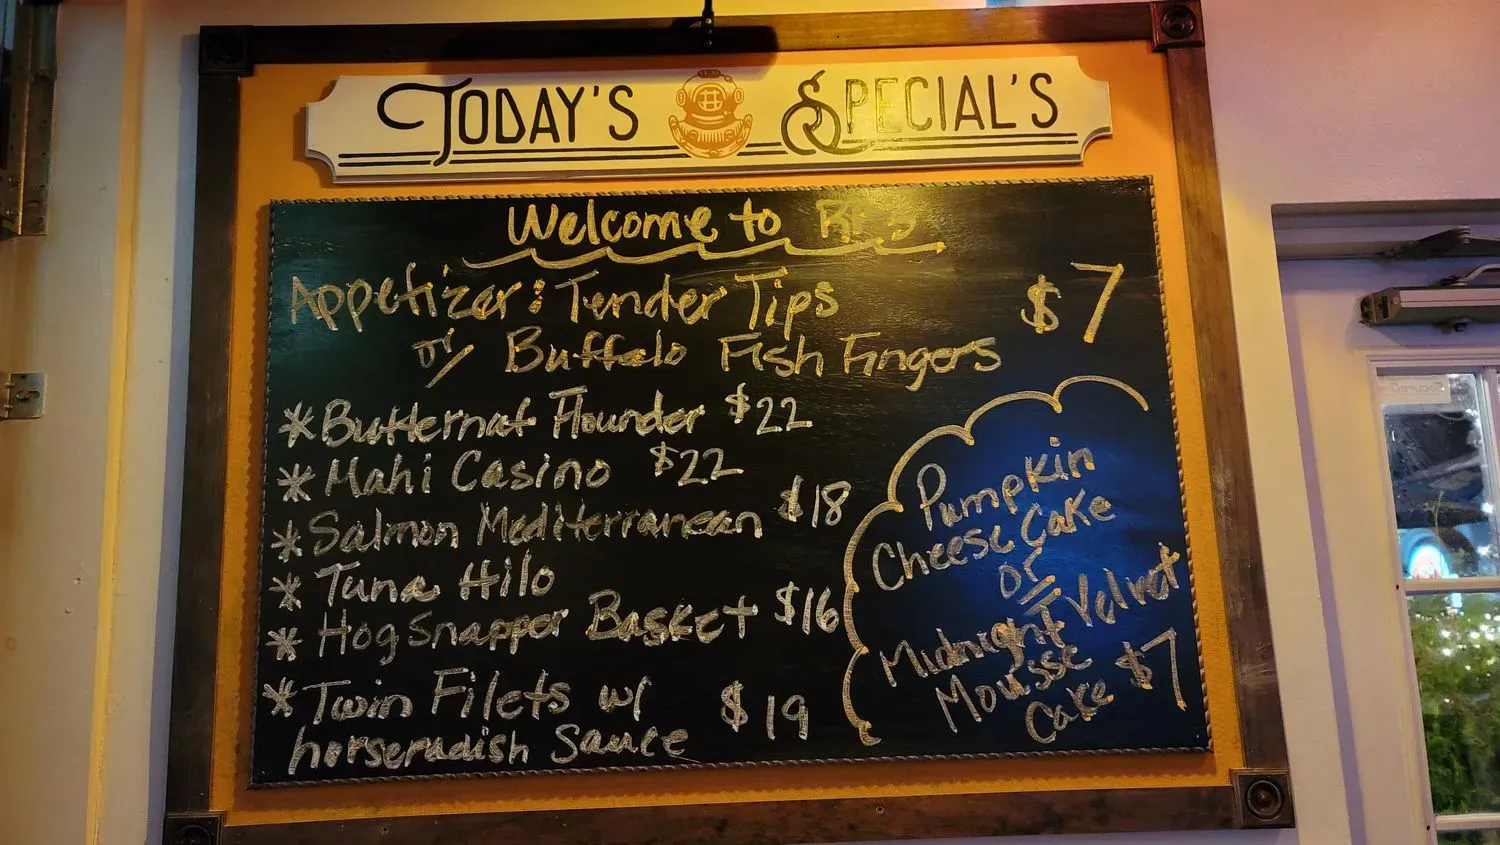 TODAY'S SPECIAL'S
Welcome to
Appetizer: Tender Tips $7
or Buffalo Fish Fingers
* Butternut Flounder $22
* Mahi Casino $22
* Salmon Mediterranean $18
* Tuna Hilo
* Hog Snapper Basket $16
* Twin Filets w/ $19
horseradish Sauce
Pumpkin
Cheese Cake
or
Midnight Velvet
Mousse
Cake $7